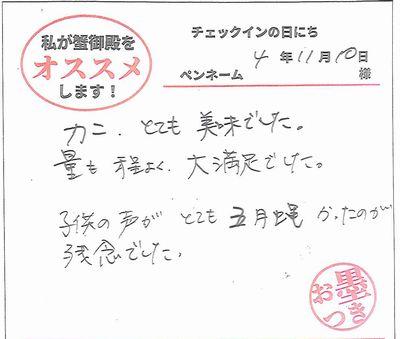 私が蟹御殿を
オススメ
します！
チェックインの日にち
4年11月10日
ペンネーム 様
カニ、とても美味でした。
量も程よく、大満足でした。
子供の声がとても五月蝿かったのが
残念でした。
お墨つき